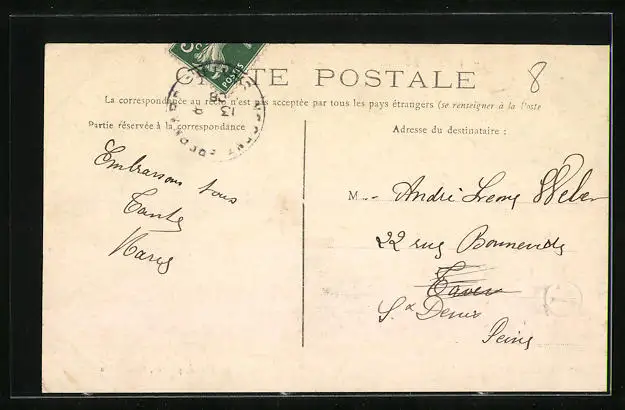 CARTE POSTALE
8
La correspondance au recto n'est pas acceptée par tous les pays étrangers (se renseigner à la Poste
Partie réservée à la correspondance
Adresse du destinataire :
Embrassons tous
Tante
Marie
M André Weber
22 rue
St Denis
Seine
5c
POSTES
13